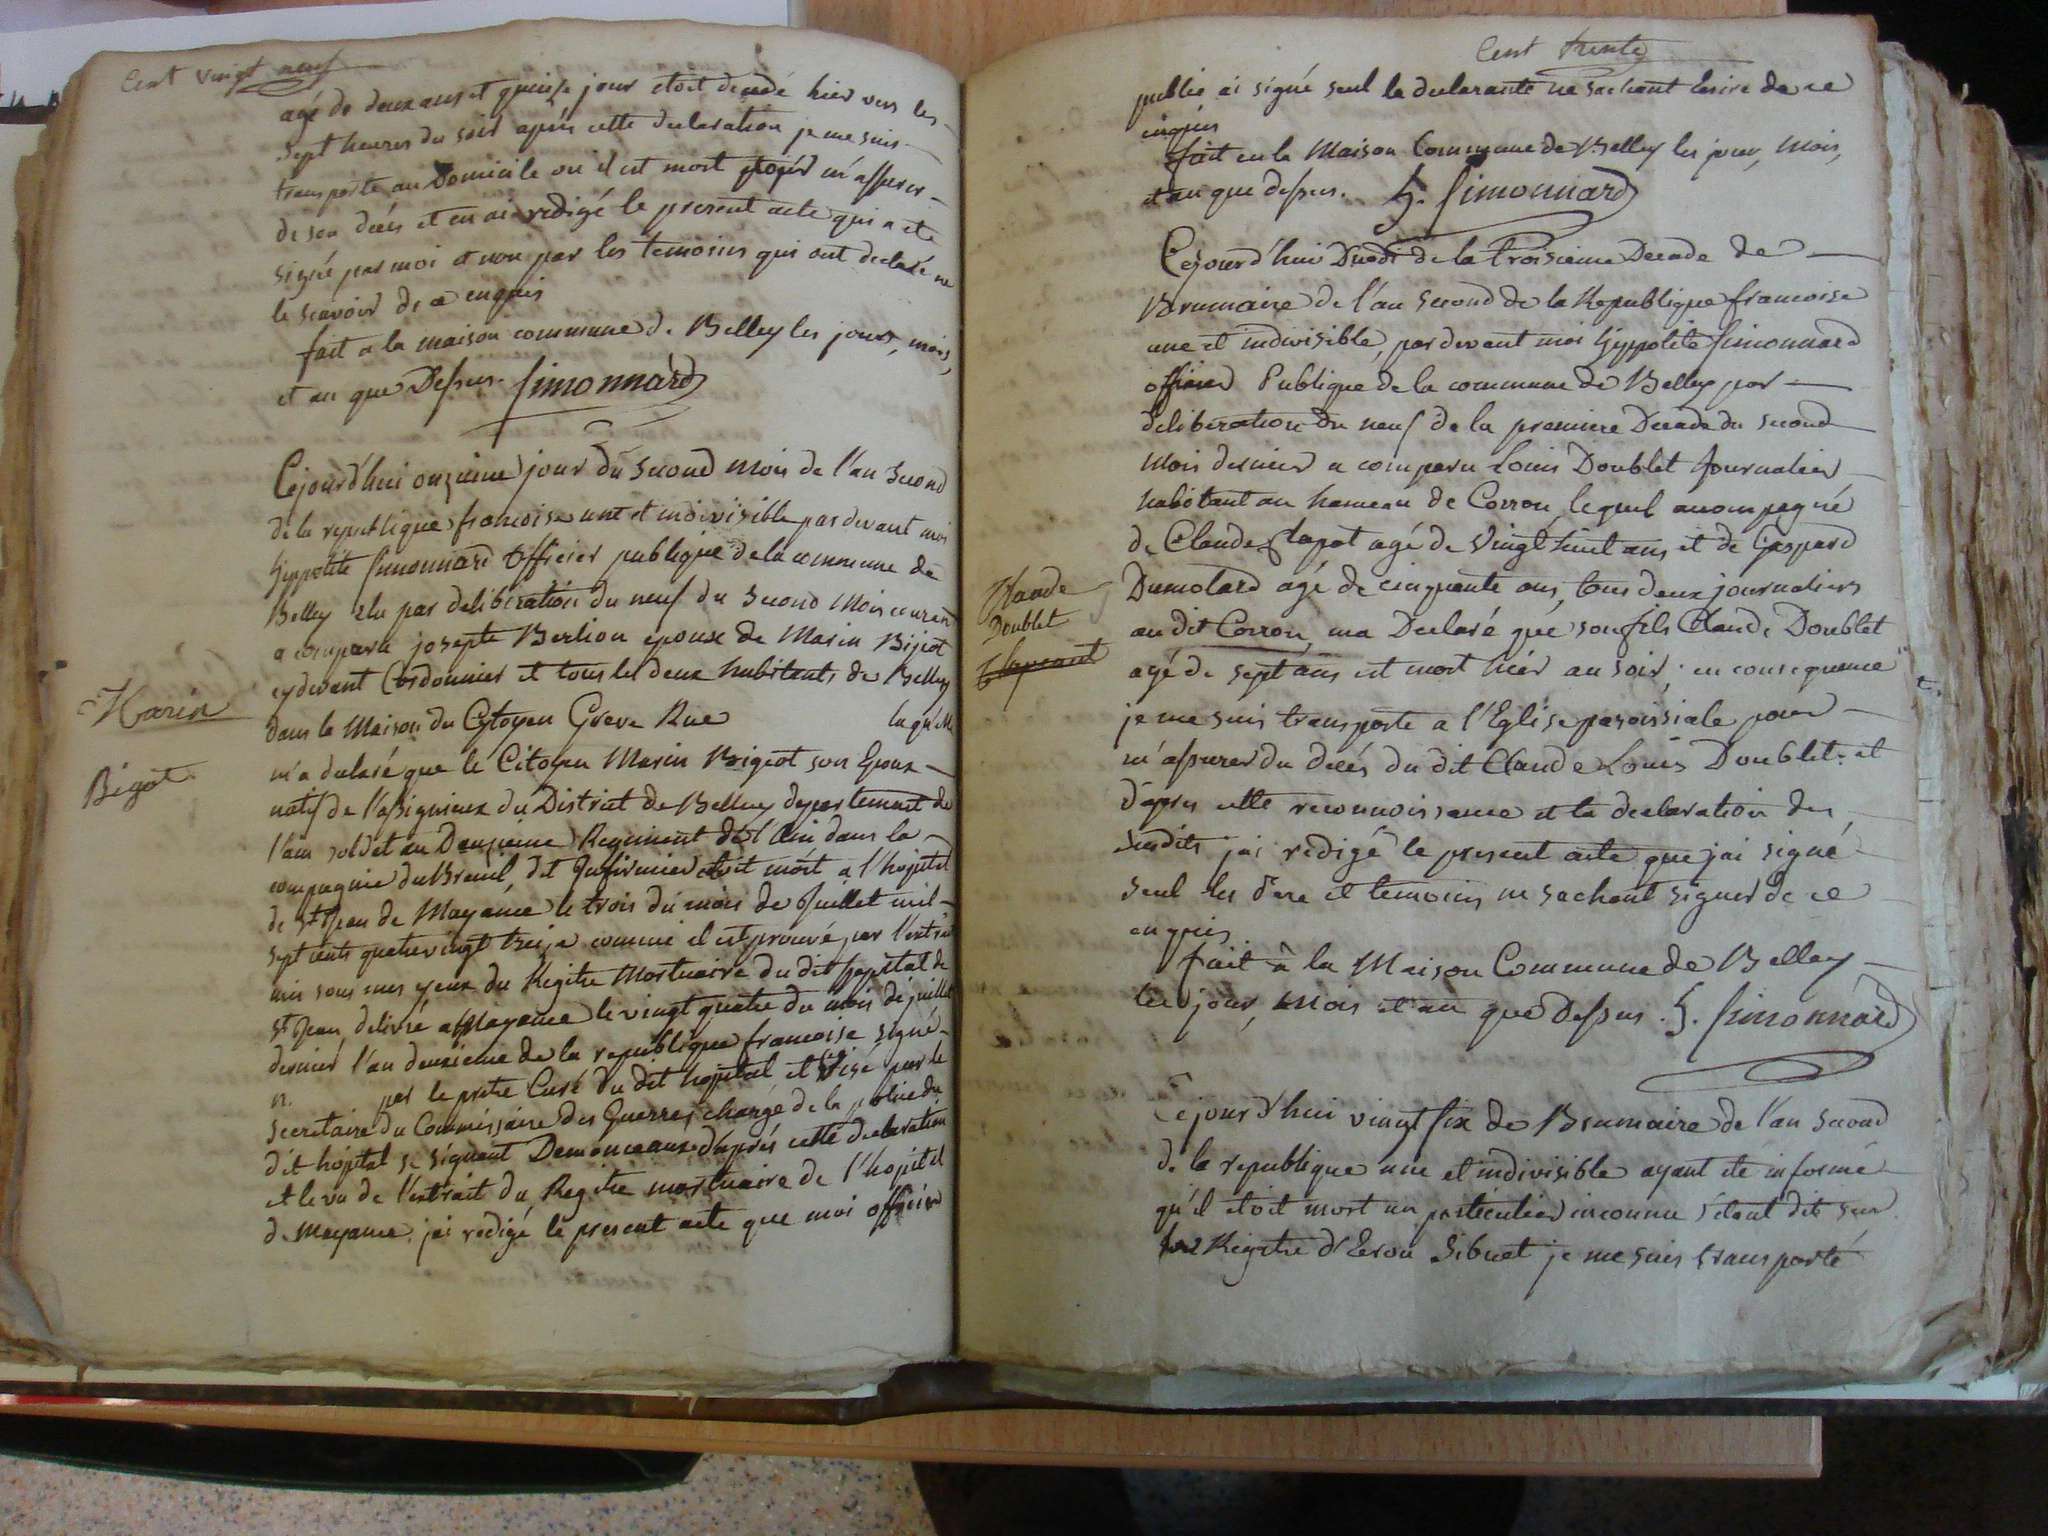 Cent vingt neuf
agé de deux ans et quinze jour etoit decedé hier vers les
sept heures du soir après cette declaration je me suis
transporté au Domicile ou il est mort pour m'assurer
de son décés et en ai redigé le present acte qui a eté
signé par moi et non par les temoins qui ont declaré ne
le scavoir de ce enquis
fait a la maison commune de Belley les jour, mois,
et an que Dessus. Simonnard
Cejourd'hui onzieme jour du second mois de l'an second
de la republique francoise une et indivisible par devant moi
hyppolite Simonnard Officier publique de la commune de
Belley elu par deliberation du neuf du second mois courant
a comparu josepte Berlion epouse de Marin Bijiot
cydevant Cordonnier et tous les deux habitants de Belley
Marin
dans la Maison du Cytoyen Greve Rue laqu'elle
m'a declaré que le Citoyen Marin Brigeot son Epoux
Bigot
natif de du District de Belley departement de
l'ain soldat au Deuxieme Regiment de l'Ain dans la
compagnie du Breuil, dit Infirmier etoit mort a l'hopital
de St Jean de Mayance le trois du mois de juillet mil
sept cents quatrevingt treize comme il est prouvé par l'extrait
mis sous mes yeux du Registre Mortuaire du dit hopital de
St Jean, delivré a Mayance le vingt quatre du mois de juillet
dernier l'an deuxieme de la republique francoise signé
n. par le pretre Curé du dit hopital et visé par le
Secretaire du Commissaire des Guerres chargé de la police du
dit hopital se signant Demonceaux d'après cette declaration
et le vu de l'extrait du Registre mortuaire de l'hopital
de Mayance j'ai redigé le present acte que moi officier
Cent trente
public ai signé seul la declarante ne sachant ecrire de ce
enquis
fait en la Maison Commune de Belley les jour, mois,
et an que dessus. h. Simonnard
Cejourd'hui Duodi de la troisieme Decade de
Brumaire de l'an second de la Republique francoise
une et indivisible, par devant moi hyppolite Simonnard
officier Publique de la commune de Belley par
deliberation du neuf de la premiere Decade du second
mois dernier a comparu Louis Doublet journalier
habitant au hameau de Corron, lequel accompagné
de Claude agé de vingt huit ans et de Gaspard
Claude
Doublet
Dumolard agé de cinquante ans, tous deux journaliers
au dit Corron, ma Declaré que son fils Claude Doublet
agé de sept ans est mort hier au soir, en consequence
je me suis transporté a l'Eglise paroissiale pour
m'assurer du décés du dit Claude Louis Doublet et
d'apres cette reconnoissance et la declaration des
susdits j'ai redigé le present acte que j'ai signé
seul les Pere et temoins ne sachant signer de ce
enquis
fait à la Maison Commune de Belley
les jour, mois et an que Dessus. h. Simonnard
Cejourd'hui vingt six de Brumaire de l'an second
de la republique une et indivisible ayant eté informé
qu'il etoit mort un particulier inconnu s'etant dit sur
Registre d'Ecrou Sibuet je me suis transporté